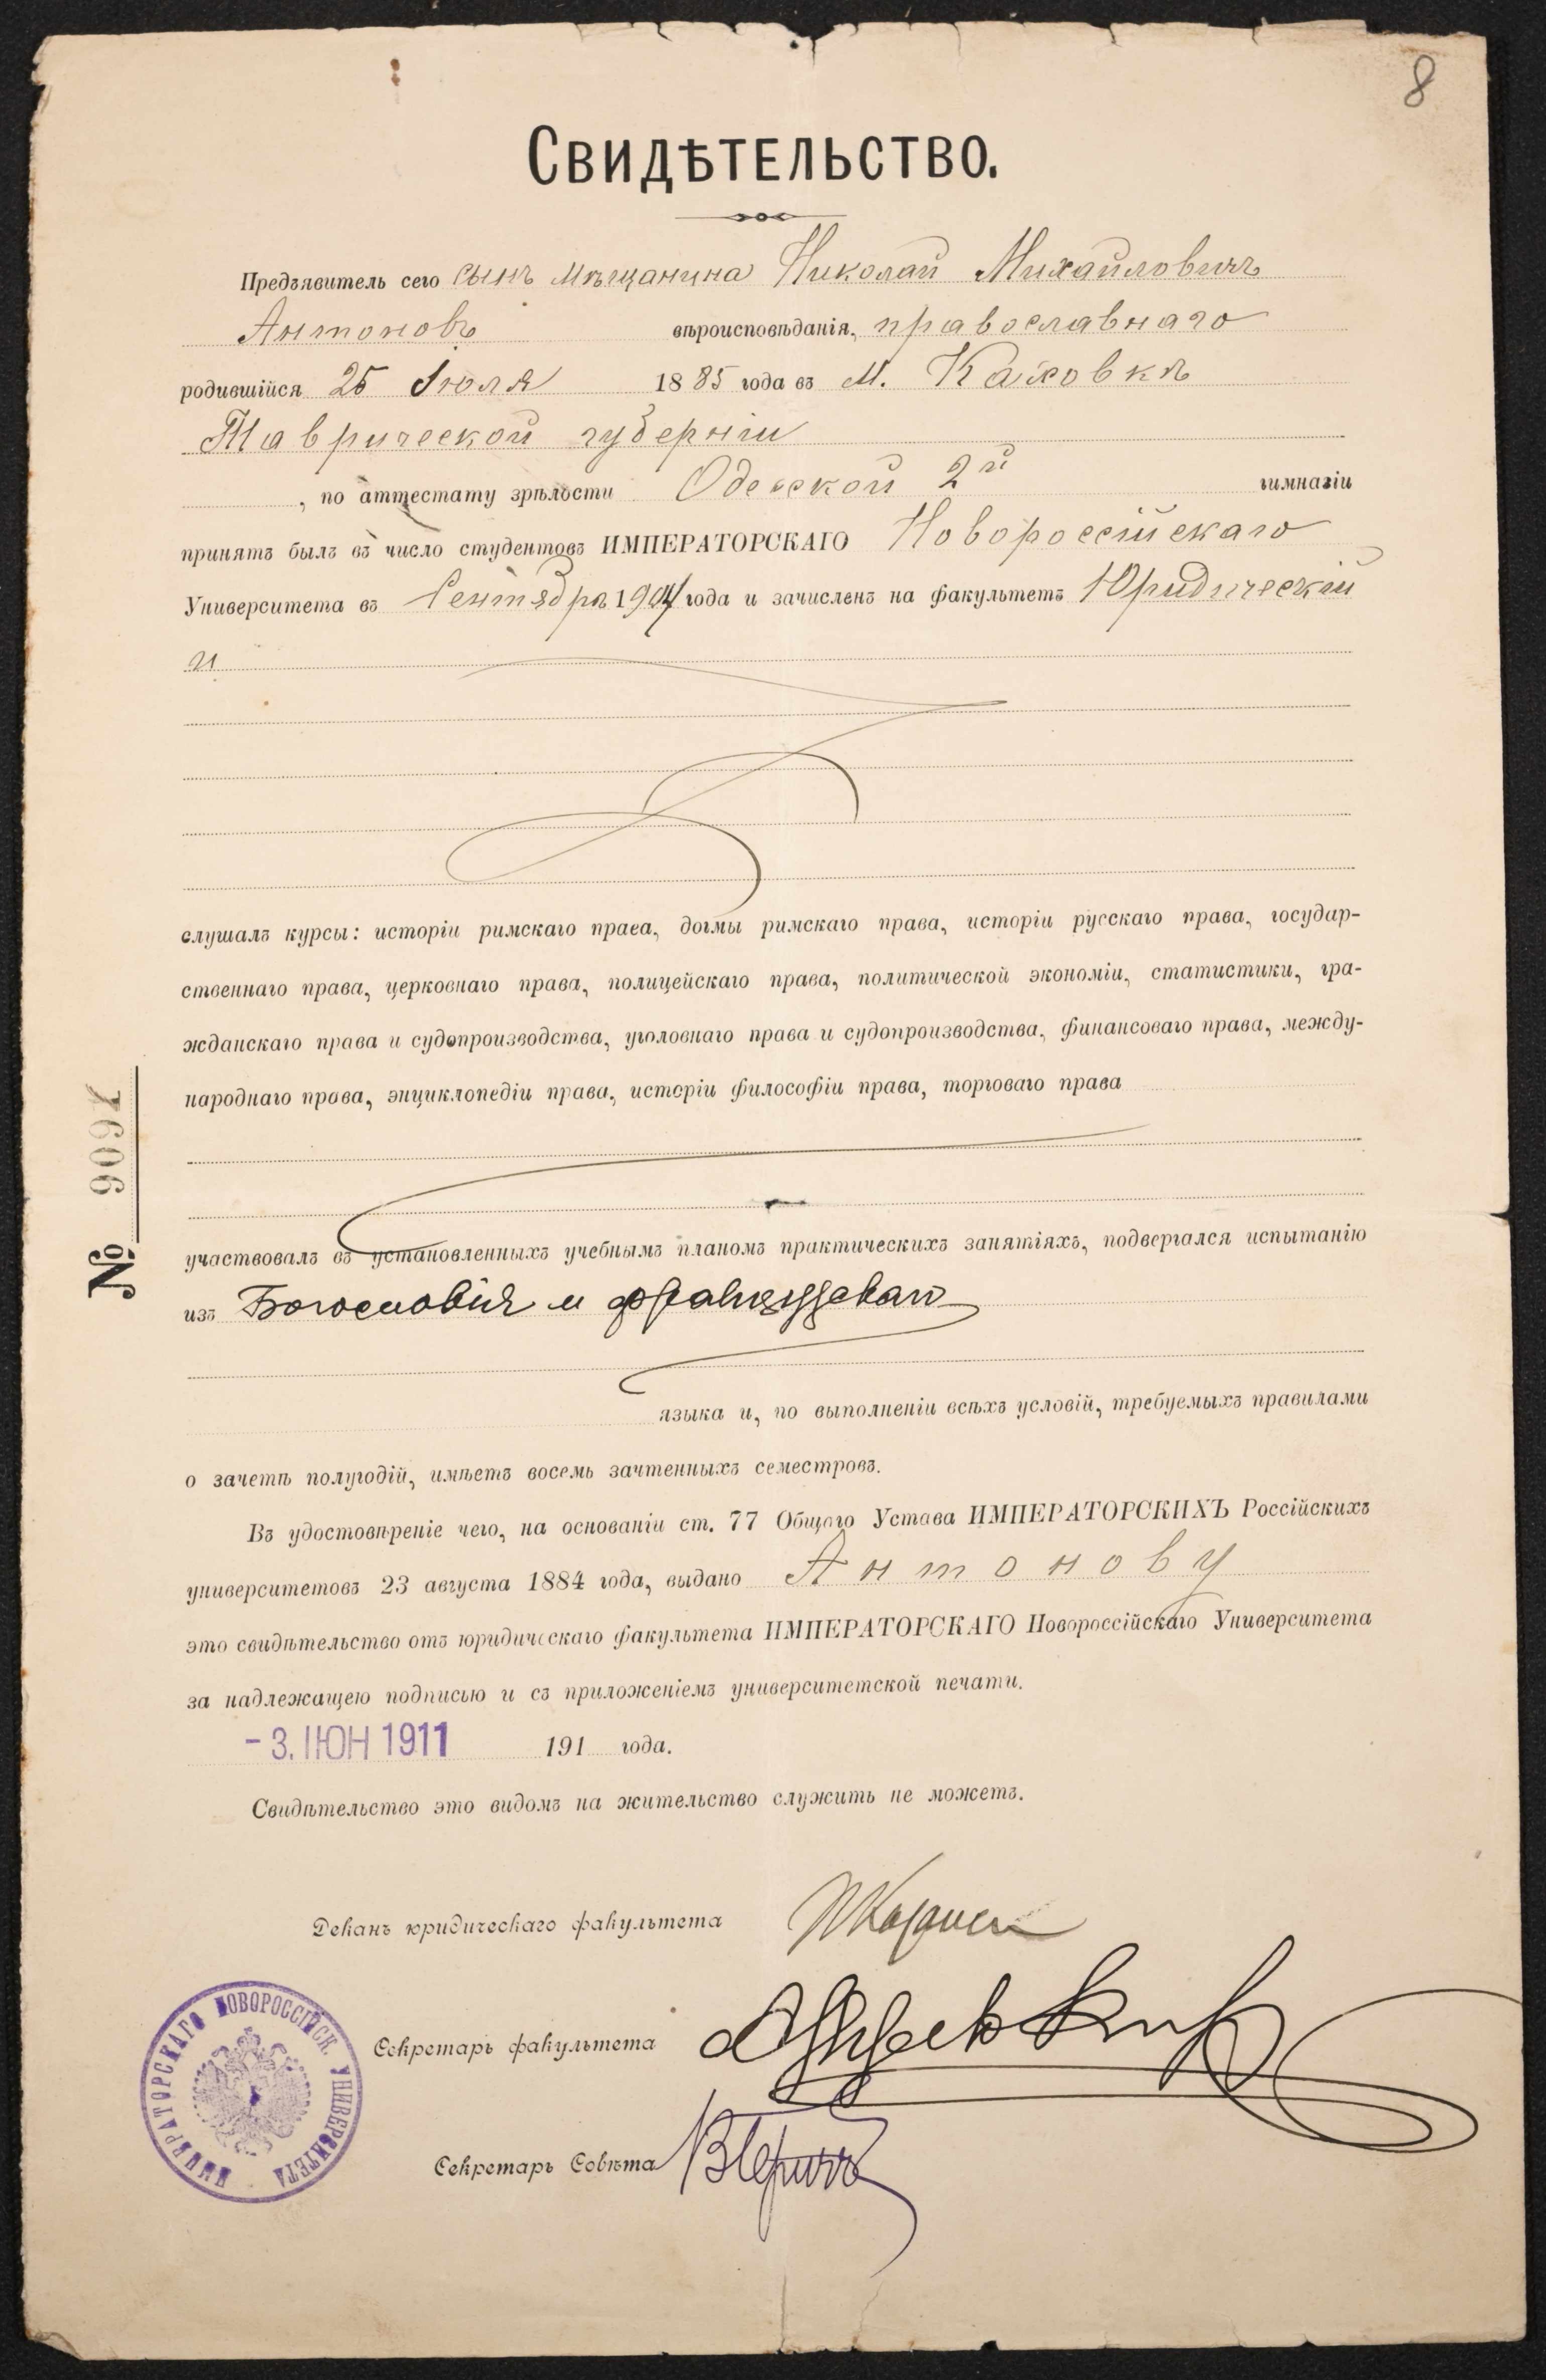 8
Свидѣтельство.
Предъявитель сего сынъ мѣщанина Николай Михайловичъ
Антоновъ вѣроисповѣданія, православнаго
родившійся 25 Іюля 1885 года въ м. Каховкѣ
Таврической губерніи
, по аттестату зрѣлости Одесской 2й гимназіи
принятъ былъ въ число студентовъ ИМПЕРАТОРСКАГО Новороссійскаго
Университета въ Сентябрѣ 1904 года и зачисленъ на факультетъ Юридическій
и
слушалъ курсы: исторіи римскаго права, догмы римскаго права, исторіи русскаго права, государ-
ственнаго права, церковнаго права, полицейскаго права, политической экономіи, статистики, гра-
жданскаго права и судопроизводства, уголовнаго права и судопроизводства, финансоваго права, между-
народнаго права, энциклопедіи права, исторіи философіи права, торговаго права
участвовалъ въ установленныхъ учебнымъ планомъ практическихъ занятіяхъ, подвергался испытанію
изъ Богословія и французскаго
языка и, по выполненіи всѣхъ условій, требуемыхъ правилами
о зачетѣ полугодій, имѣетъ восемь зачтенныхъ семестровъ.
Въ удостовѣреніе чего, на основаніи ст. 77 Общаго Устава ИМПЕРАТОРСКИХЪ Россійскихъ
университетовъ 23 августа 1884 года, выдано Антонову
это свидѣтельство отъ юридическаго факультета ИМПЕРАТОРСКАГО Новороссійскаго Университета
за надлежащею подписью и съ приложеніемъ университетской печати.
- 3. ІЮН 1911 191 года.
Свидѣтельство это видомъ на жительство служить не можетъ.
Деканъ юридическаго факультета
Секретарь факультета
Секретарь Совѣта
ИМПЕРАТОРСКАГО НОВОРОССІЙСК. УНИВЕРСИТЕТА
№ 9097